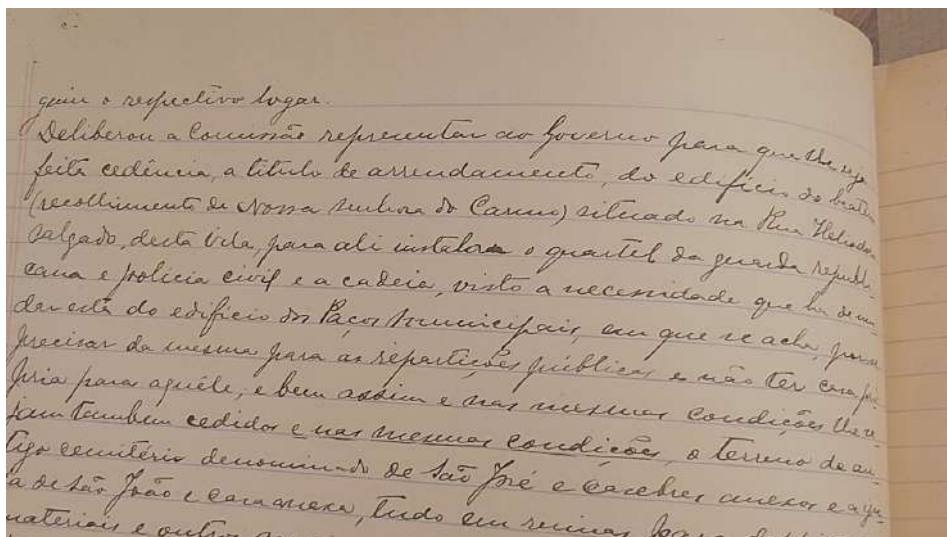 guir o respectivo logar.
Deliberou a Comissão representar ao Governo para que lhe seja
feita cedência, a titulo de arrendamento, do edificio do beatério
(recolhimento de Nossa Senhora do Carmo) situado na Rua Heliodoro
Salgado, desta vila, para ali instalar o quartel da guarda republi-
cana e policia civil e a cadeia, visto a necessidade que ha de mu-
dar esta do edificio dos Paços Municipais, em que se acha, por se
precisar da mesma para as repartições públicas e não ter casa pró-
pria para aquele, e bem assim e nas mesmas condições lhe se-
jam tambem cedidos e nas mesmas condições, o terreno do an-
tigo cemitério denominado de São José e casebres anexos e a
a de São João e casa anexa, tudo em ruinas, para
materiais e outros